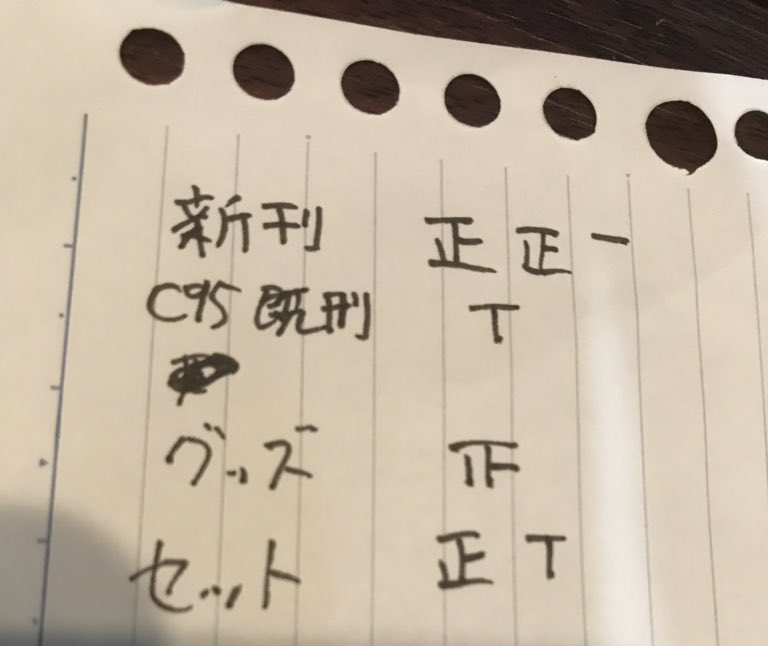 新刊 正 正 一
C95 既刊 T
グッズ 𝍵
セット 正 T